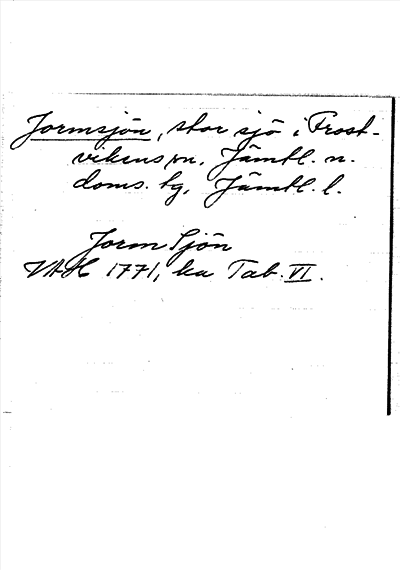 Jormsjön, stor sjö i Frost-
vikens sn, Jämtl. n.
doms. tg, Jämtl. l.
Jorm Sjön
VAH 1771, ka Tab. VI.